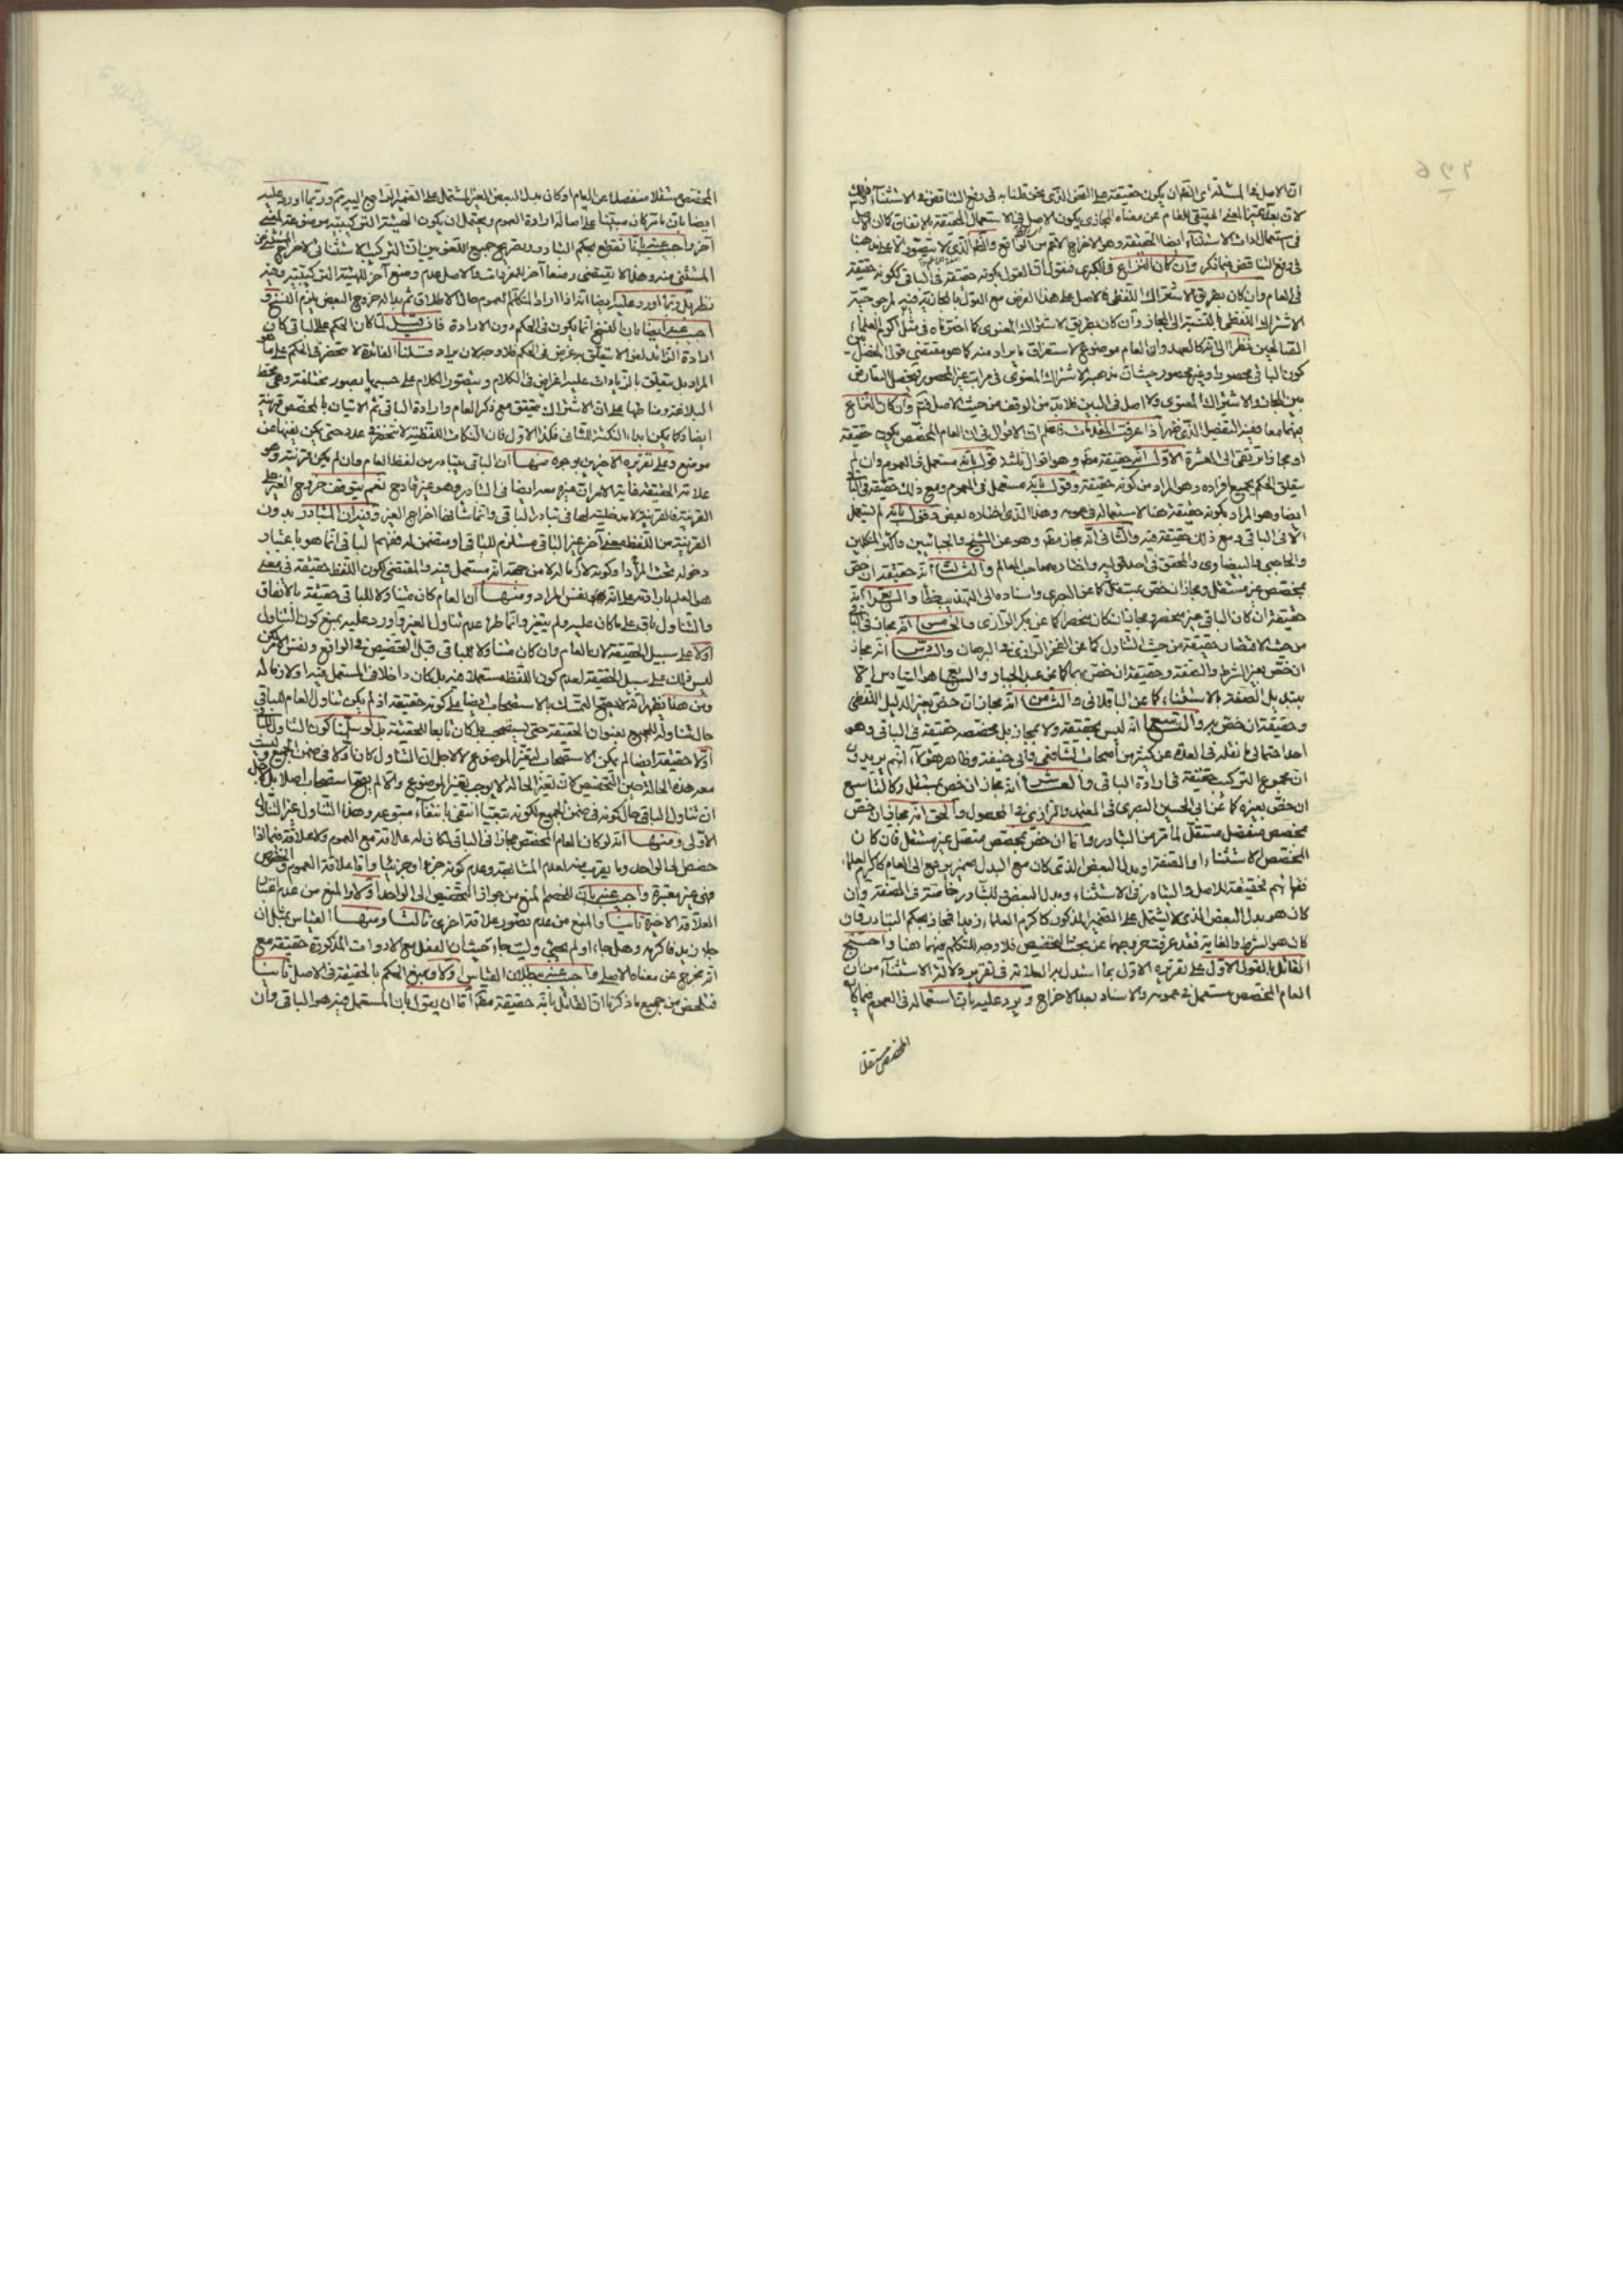 ان الاصل في المسئلة اى التعيان يكون حقيقة على القول الذى نحن قلنا به فى رفع التناقض فى الاستثناء وذلك
لان بعد تميز المعنى الحقيقى للعام عن معناه المجازى يكون الاصل فى الاستعمال الحقيقة بالاتفاق كان الاصل
فى استعمال اداة الاستثناء ايضا الحقيقة وهو الاخراج الاعم من الواقع
فى دفع التناقض فيما ذكر وان كان النزاع فى الكبرى فنقول ان القول بكونه حقيقة فى الباقى لكونه حقيقة
فى العام وان كان بطريق الاشتراك اللفظى فالاصل على هذا الفرض مع القول بالمجازية فيه لمرجوحية
الاشتراك اللفظى بالنسبة الى المجاز وان كان بطريق الاشتراك المعنوى كما اخترناه فى مثل اكرم العلماء
الصالحين نظرا الى تركالعهد وان العام موضوع لاستغراق ما يراد منه كما هو مقتضى قول المفصل
كون الباقى محصورا وغير محصور حيث ان مذهبه الاشتراك المعنوى فى مراتب غير المحصور فيحصل التعارض
بين المجاز والاشتراك المعنوى ولا اصل فى البين فلا بد من الوقف من حيث الاصل فتم وان كان النزاع
فيهما معا ففيه التفصيل الذى ظهر اذا عرفت المقدمات فاعلم ان الاقوال فى ان العام المخصص يكون حقيقة
او مجازا ترتقى الى العشرة الاول انه حقيقة مط وهو اقوال ثلثة قول بانه مستعمل فى العموم وان لم
يتعلق الحكم بجميع افراده وهو المراد من كونه حقيقة وقول بانه مستعمل فى العموم ومع ذلك حقيقة فى الباقى
ايضا وهو المراد بكونه حقيقة هنا لاستعماله فى عمومه وهذا الذى اختاره بعض وقول بانه لم يستعمل
الا فى الباقى ومع ذلك حقيقة فيه والثانى انه مجاز مط وهو عن الشيخ والجبائيين واكثر المتكلمين
والحاجبى والبيضاوى والمحقق فى احد قوليه واختاره صاحب المعالم والثالث انه حقيقة ان خص
بمخصص غير مستقل ومجاز ان خص بمستقل كما عن البصرى واسناده الى التهذيب خطأ والرابع انه
حقيقة ان كان الباقى غير منحصر ومجاز ان كان منحصرا كما عن ابى بكر الرازى والخامس انه مجاز فى الباقى
من حيث الاقتصار حقيقة من حيث التناول كما عن الفخر الرازى فى البرهان والسادس انه مجاز
ان خص بغير الشرط والصفة وحقيقة ان خص بهما كما عن عبد الجبار والسابع ما هو السادس الا
بتبديل الصفة بالاستثناء كما عن الباقلانى والثامن انه مجاز ان خص بغير الدليل اللفظى
وحقيقة ان خص به والتاسع انه ليس بحقيقة ولا مجاز بل مع مخصصه حقيقة فى الباقى وهو
احد احتمالى ما نقله فى العدة عن كثير من اصحاب الشافعى وابى حنيفة وظاهر هؤلاء انهم يريدون
ان مجموع التركيب حقيقة فى ارادة الباقى والعاشر انه مجاز ان خص بمستقل وكالتاسع
ان خص بغيره كما عن ابى الحسين البصرى فى المعتمد والرازى فى المحصول والحق انه مجاز ان خص
بمخصص منفصل مستقل لما مر من التبادر واما ان خص بمخصص متصل غير مستقل فان كان
المخصص الاستثناء او الصفة او بدل البعض الذى كان مع البدل ضمير يرجع الى العام كاكرم العلماء
فقهائهم فحقيقة للاصل والتبادر فى الاستثناء وبدل البعض وللتبادر خاصة فى الصفة وان
كان هو بدل البعض الذى لا يشتمل على الضمير المذكور كاكرم العلماء زيدا فمجاز بحكم التبادر وان
كان هو الشرط والغاية فقد عرفت خروجهما عن بحث التخصيص فلا وجه للتكلم فيهما هنا واحتج
القائل بالقول الاول على تقريره الاول بما استدل به العلامة فى تقرير دلالة الاستثناء من ان
العام المخصص مستعمل فى عمومه والاسناد بعد الاخراج ويرد عليه بان استعماله فى العموم فيما كان
المخصص مستقلا
المخصص مستقلا منفصلا عن العام او كان بدل البعض الغير المشتمل على الضمير الراجع اليه مم وربما اورد عليه
ايضا بان ما مر كان مبتنيا على اصالة ارادة العموم ويحتمل ان يكون الهيئة التركيبية موضوعة لمعنى
آخر واجيب عنه بانا نقطع بحكم التبادر وتصريح جميع اللغويين ان التركيب الاستثنائى لاخراج المستثنى عن
المستثنى منه وهذا لا يقتضى وضعا آخر للمفردات والاصل عدم وضع آخر للهيئة التركيبية وفيه
نظر بل وربما اورد عليه ايضا انه اذا اراد المتكلم العموم حال الاطلاق ثم بدا له خروج البعض يلزم النسخ و
اجيب عنه ايضا بان النسخ انما يكون فى الحكم دون الارادة فان قيل لما كان الحكم على الباقى كان
ارادة الزائد لغوا لا يتعلق به غرض فى الحكم فلا وجه لان يراد قلنا الفائدة لا تنحصر فى الحكم على ما هو
المراد بل يتعلق بالزيادات عليه اغراض فى الكلام ويتصور الكلام على حسبها بصور مختلفة وهى محط
البلاغة ومناطها على ان الاشتراك يتحقق مع ذكر العام وارادة الباقى ثم الاتيان بالمخصص قرينة
ايضا وكما يكن ابداء النكتة للثانى فكذا الاول فان النكات اللفظية لا تنحصر فى عدد حتى يكن بغيها عن
موضع وعلى تقريره الاخرين بوجوه منها ان الباقى يتبادر من لفظ العام وان لم يكن قرينة وهو
علامة الحقيقة غاية الامر ان غيره معه ايضا فى التبادر وهو غير قادح نعم يتوقف خروج الغير على
القرينة فالقرينة لا مدخلية لها فى تبادر الباقى وانما شأنها اخراج الغير وفيه ان المتبادر بدون
القرينة من اللفظ معنى آخر غير الباقى مستلزم للباقى او متضمن له ففهم الباقى انما هو باعتبار
دخوله تحت المراد وكونه لازما له لا من جهة انه مستعمل فيه والمقتضى لكون اللفظ حقيقة فى معنى
هو العلم بارادته على انه نفس المراد ومنها ان العام كان متناولا للباقى حقيقة بالاتفاق
والتناول باق على ما كان عليه ولم يتغير وانما طرء عدم تناول الغير واورد عليه بمنع كون التناول
اولا على سبيل الحقيقة لان العام وان كان متناولا للباقى قبل التخصيص فى الواقع ونفس الامر لكن
ليس ذلك على سبيل الحقيقة لعدم كون اللفظ مستعملا فيه بل كان داخلا فى المستعمل فيه او لازما له
ومن هنا ظهر انه لا يصح التمسك بالاستصحاب ايضا على كونه حقيقة اذ لم يكن تناول العام للباقى
حال تناوله للجميع بعنوان الحقيقة حتى يستصحب بل كان تابعا للحقيقة بل لو سلمنا كون التناول للباقى
اولا حقيقة ايضا لم يمكن الاستصحاب لتغير الموضوع لا لاجل ان التناول كان اولا فى ضمن الجميع وليست
معه هذه الحالة حين التخصيص لان تغير الحالة لا يوجب تغير الموضوع والا لم يصح استصحاب اصلا بل لاجل
ان تناول الباقى حال كونه فى ضمن الجميع لكونه تبعيا انتفى بانتفاء متبوعه وهذا التناول غير التناول
الاولى ومنها انه لو كان العام المخصص مجازا فى الباقى لكان له علاقة مع العموم ولا علاقة فيما اذا
خصص الى الواحد وما يقرب منه لعدم المشابهة وعدم كونه جزءا او جزئيا واما علاقة العموم والخصوص
فهى غير معتبرة واجيب عنه بان للخصم المنع من جواز التخصيص الى الواحد اولا والمنع من عدم اعتبار
العلاقة الاخيرة ثانيا والمنع من عدم تصور علاقة اخرى ثالثا ومنها القياس بمثل ان
جاء زيد فاكرمه وهل جاء او لم يجئنى وليت جاء حيث ان الفعل مع الادوات المذكورة حقيقة مع
انه مخرج عن معناه الاصلى واجيب عنه ببطلان القياس اولا وبمنع الحكم بالحقيقة فى الاصل ثانيا
فتلخص من جميع ما ذكرنا ان القائل بانه حقيقة مط اما ان يقول بان المستعمل فيه هو الباقى وان